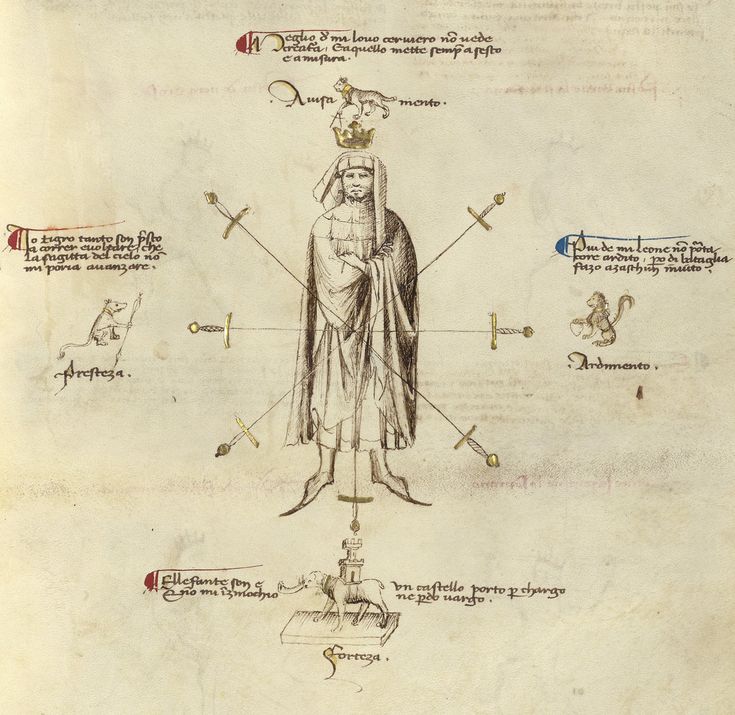 Meglio de mi lovo cerviero no vede
creatura. Eaquello mette semp a sesto
e a misura.
Avisa mento.
Io tigro tanto son psto
a correr e voltare, che
la sagitta del cielo no
mi poria avanzare.
Presteza.
Piu de mi leone no porta
core ardito, po di bataglia
fazo azaschun invito.
Ardimento.
Ellefante son e
un castello porto p chargo
E no mi inzinochio
ne pdo vargo.
Forteza.